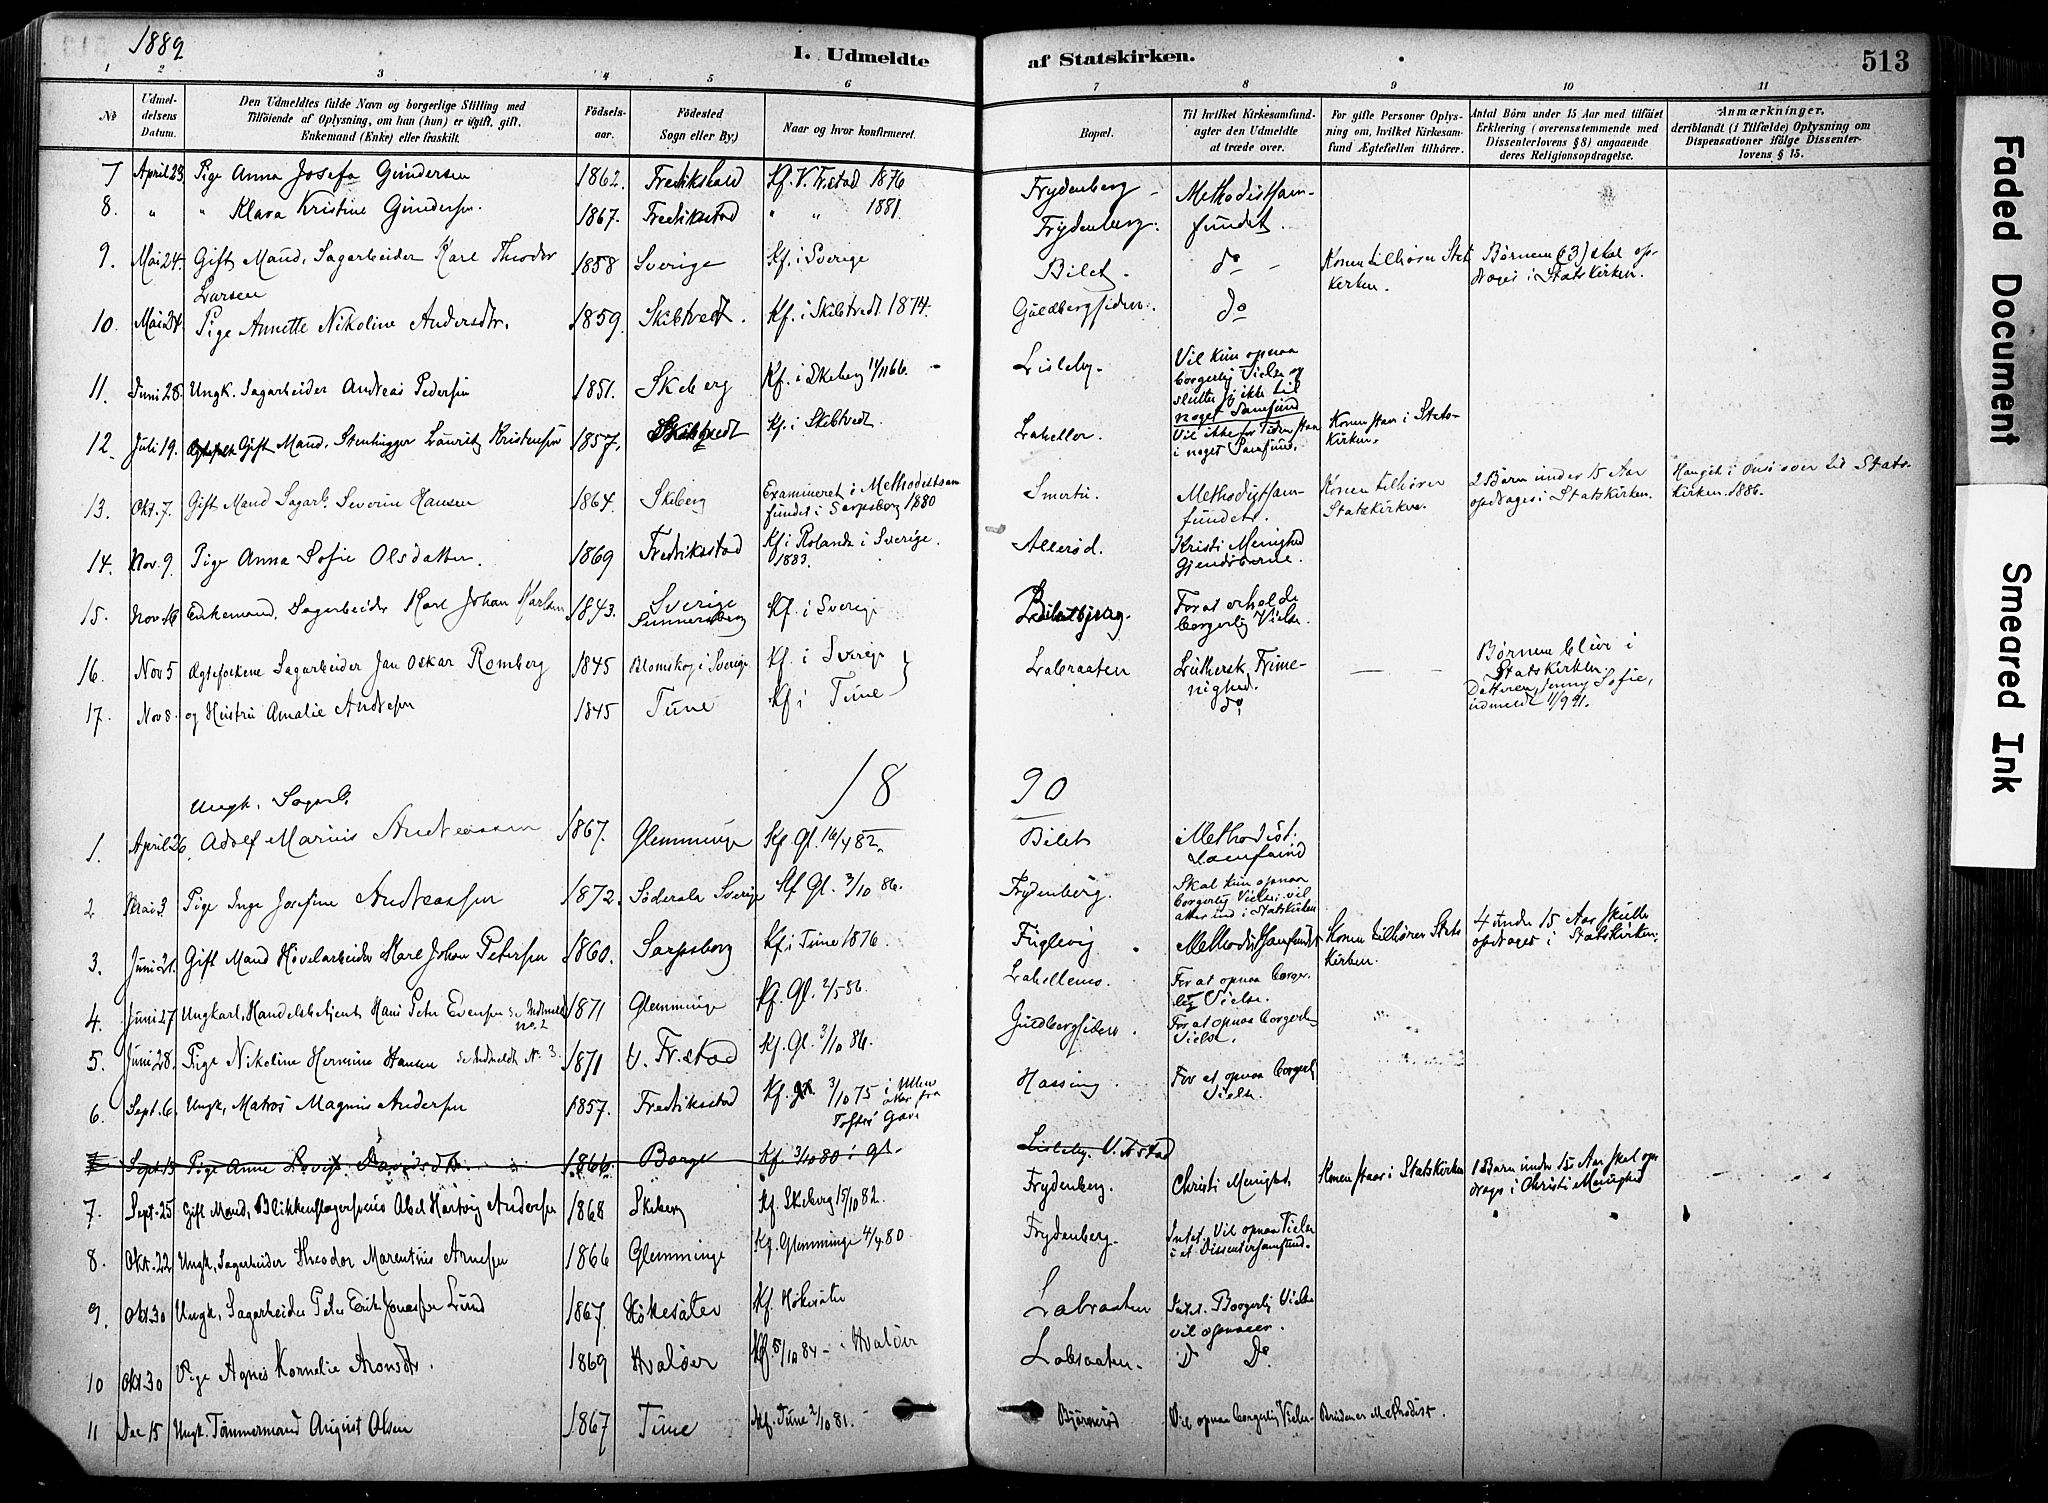 1889
I. Udmeldte af Statskirken.
513
1 2 3 4 5 6 7 8 9 10 11
No
Udmeldelsens Datum.
Den Udmeldtes fulde Navn og borgerlige Stilling med
Tilföiende af Oplysning, om han (hun) er ugift, gift,
Enkemand (Enke) eller fraskilt.
Födselsaar.
Födested
Sogn eller By.)
Naar og hvor konfirmeret.
Bopæl.
Til hvilket Kirkesamfund
agter den Udmeldte
at træde over.
For gifte Personer Oplysning om, hvilket Kirkesamfund Ægtefællen tilhörer.
Antal Börn under 15 Aar med tilföiet
Erklæring (overensstemmende med
Dissenterlovens § 8) angaaende
deres Religionsopdragelse.
Anmærkninger,
deriblandt (i Tilfælde) Oplysning om
Dispensationer ifölge Dissenterlovens § 15.
7 April 23 Pige Anna Josefa Gundersen 1862. Fredrikshald Kf. V. Fr.stad 1876 Frydenberg Methodistsam-
8. " " Klara Kristine Gundersen. 1867. Fredriksstad " " 1881. Frydenberg. fundet.
9. Mai 24. Gift Mand, Sagarbeider Karl Theodor Larsen 1858 Sverige Kf. i Sverige Bilet. do Konen tilhører Statskirken. Børnene (3) skal opdrages i Statskirken.
10. Mai 24. Pige Annette Nikoline Andersdtr. 1859. Skibtvedt. Kf. i Skibtvedt 1874. Guldbergsiden. do
11. Juni 28. Ungk. Sagarbeider Andreas Pedersen 1851. Skeberg Kf. i Skeberg 1866. Lisleby. Vil kun opnaa borgerlig Vielse og slutter sig ikke til noget Samfund
12. Juli 19. Gift Mand, Stenhugger Lauritz Kristensen 1857. Skibtvedt Kf. i Skibtvedt. Lahellen. Vil ikke for Tiden staa i noget Samfund. Konen staar i Statskirken.
13. Okt. 7. Gift Mand Sagarb. Severin Hansen 1864. Skeberg Examineret i Methodistsamfundet i Sarpsborg 1880 Smertu. Methodistsamfundet. Konen tilhører Statskirken. 2 Børn under 15 Aar opdrages i Statskirken. i Onsø over til Statskirken 1886.
14. Nov. 9. Pige Anna Sofie Olsdatter. 1869 Fredriksstad Kf. i Rolanda i Sverige. 1883. Allerød. Kristi Menighed Gjendøberne.
15. Nov. 16 Enkemand, Sagarbeider Karl Johan Karlsen 1843. Sverige Kf. i Sverige For at erholde borgerlig Vielse.
16. Nov 5 Ægtefolkene Sagarbeider Jan Oskar Romberg 1845 Blomskog i Sverige Kf. i Sverige Labraaten Luthersk Frimenighed. Børnene bliver i Statskirken. Datteren, Jenny Sofie, udmeldt 11/9 91.
17. Nov 8. og Hustru Amalie Andresen 1845 Tune Kf. i Tune do
18 90
1. April 26. Ungk. Sagarb. Adolf Marius Andreassen 1867. Glemminge Kf. Gl. 16/4 82. Bilet Methodist. Samfund
2 Mai 3. Pige Inge Josefine Andreassen 1872. Söderala Sverige Kf Gl. 3/10 86. Frydenberg. Skal kun opnaa borgerlig Vielse, vil atter ind i Statskirken
3. Juni 21. Gift Mand Høvelarbeider Karl Johan Petersen 1860. Sarpsborg Kf. i Tune 1876. Fuglevig Methodistsamfundet Konen tilhører Statskirken. 4 under 15 Aar skulle opdrages i Statskirken.
4. Juni 27 Ungkarl, Handelsbetjent Hans Peter Evensen se Indmeldt no. 2 1871 Glemminge Kf. Gl. 2/5 86. Lahellens. For at opnaa borgerlig Vielse.
5. Juni 28. Pige Nikoline Hermine Hansen se Indmeldt No. 3. 1871 V. Fr.stad Kf. Gl. 3/10 86. Guldbergsiden. For at opnaa borgerl. Vielse.
6. Sept. 6. Ungk, Matros Magnus Andersen 1857. Fredriksstad Kf. 3/10 75 i Ullern Toftes Gave Hassing. For at opnaa borgerl. Vielse.
Sept. 13 Pige Anne Davidsdtr. 1866. Borge Kf. 3/10 80 i Gl. Lisleby. V. Fr.stad
7. Sept. 25 Gift Mand, Blikkenslagersvend Abel Hartvig Andersen 1868 Skeberg Kf. Skeberg 15/10 82. Frydenberg. Christi Menighed Konen staar i Statskirken 1 Barn under 15 Aar skal opdrages i Christi Menighed
8. Okt. 22 Ungk, Sagarbeider Theodor Marentius Arnesen 1866 Glemminge Kf. Glemminge 4/4 80. Frydenberg. Intet. Vil opnaa Vielse i et Dissentersamfund.
9. Okt 30 Ungk, Sagarbeider Peter Erik Jonassen Lund 1867. Høkesäter Kf. Høkesäter Labraaten Intet. Borgerlig Vielse vil opnaaes.
10 Okt 30 Pige Agnes Kornelie Aronsdtr. 1869 Hvaløer Kf. 5/10 84 i Hvaløer Labraaten. Do Do.
11 Dec 15 Ungk. Tømmermand August Olsen 1867 Tune Kf. Tune 2/10 81. Bjørnerød Vil opnaa borgerlig Vielse. Bruden er Methodist.
Faded Document
Smeared Ink